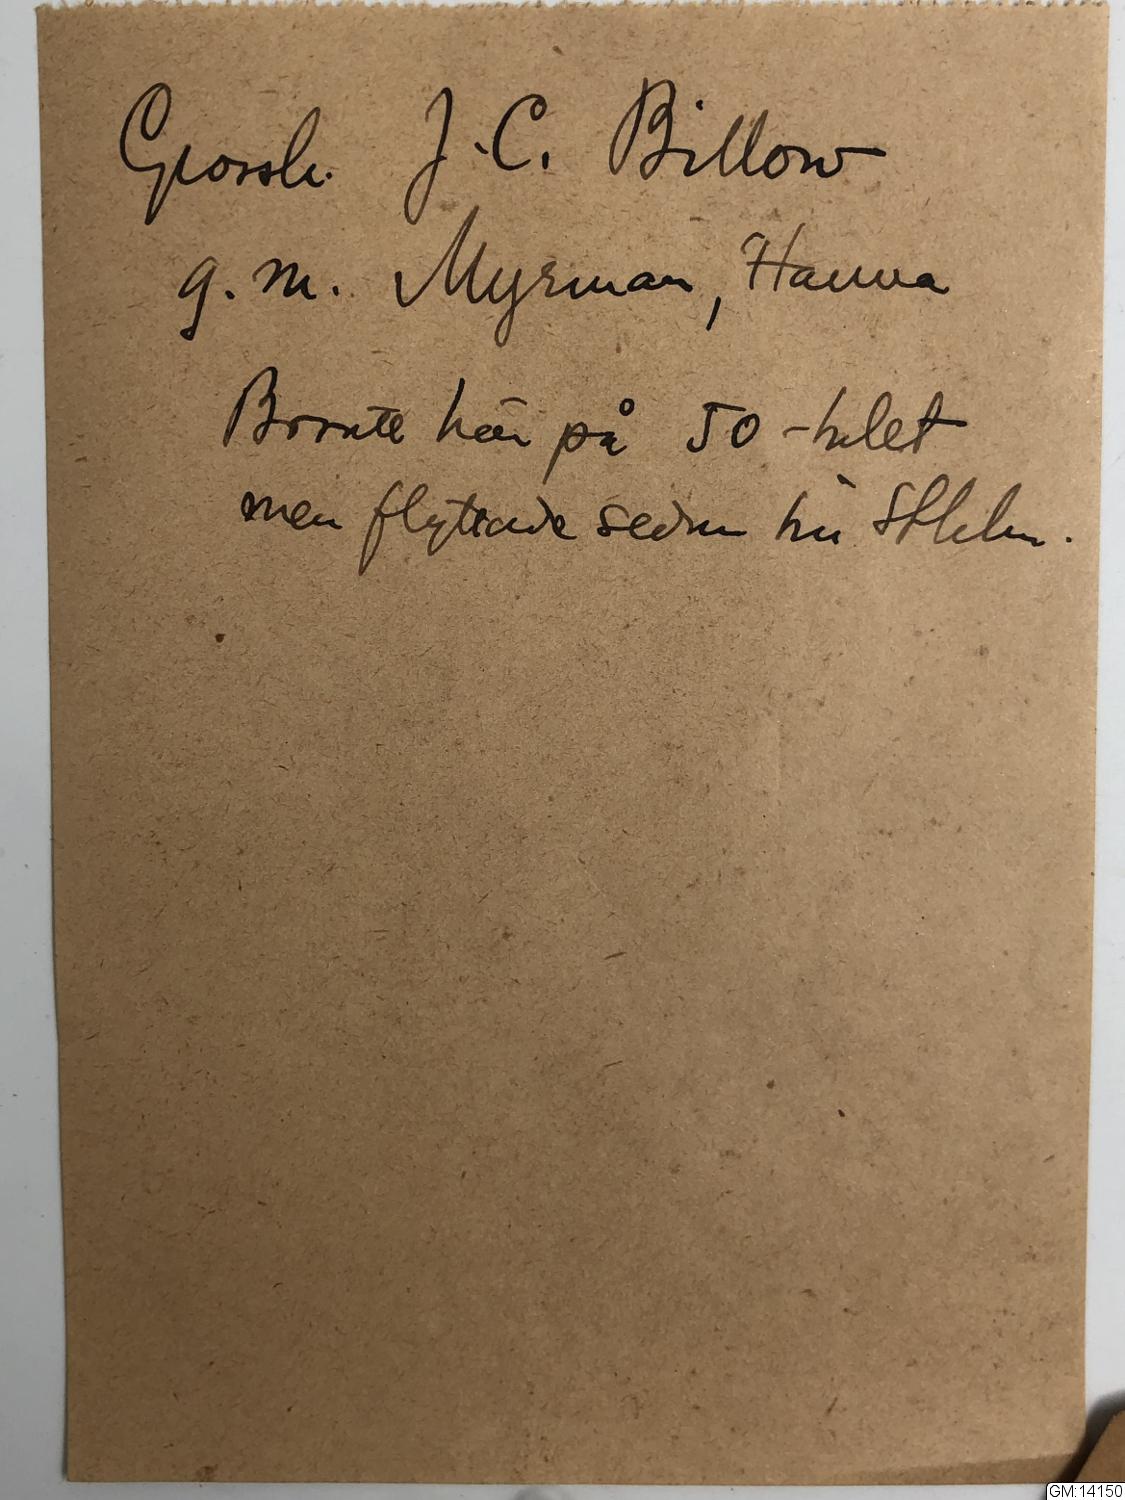 Grossh. J.C. Billow
g.m. Myrman, Hanna
Bodde här på 50-talet
men flyttade sedan till Sthlm.
GM:14150